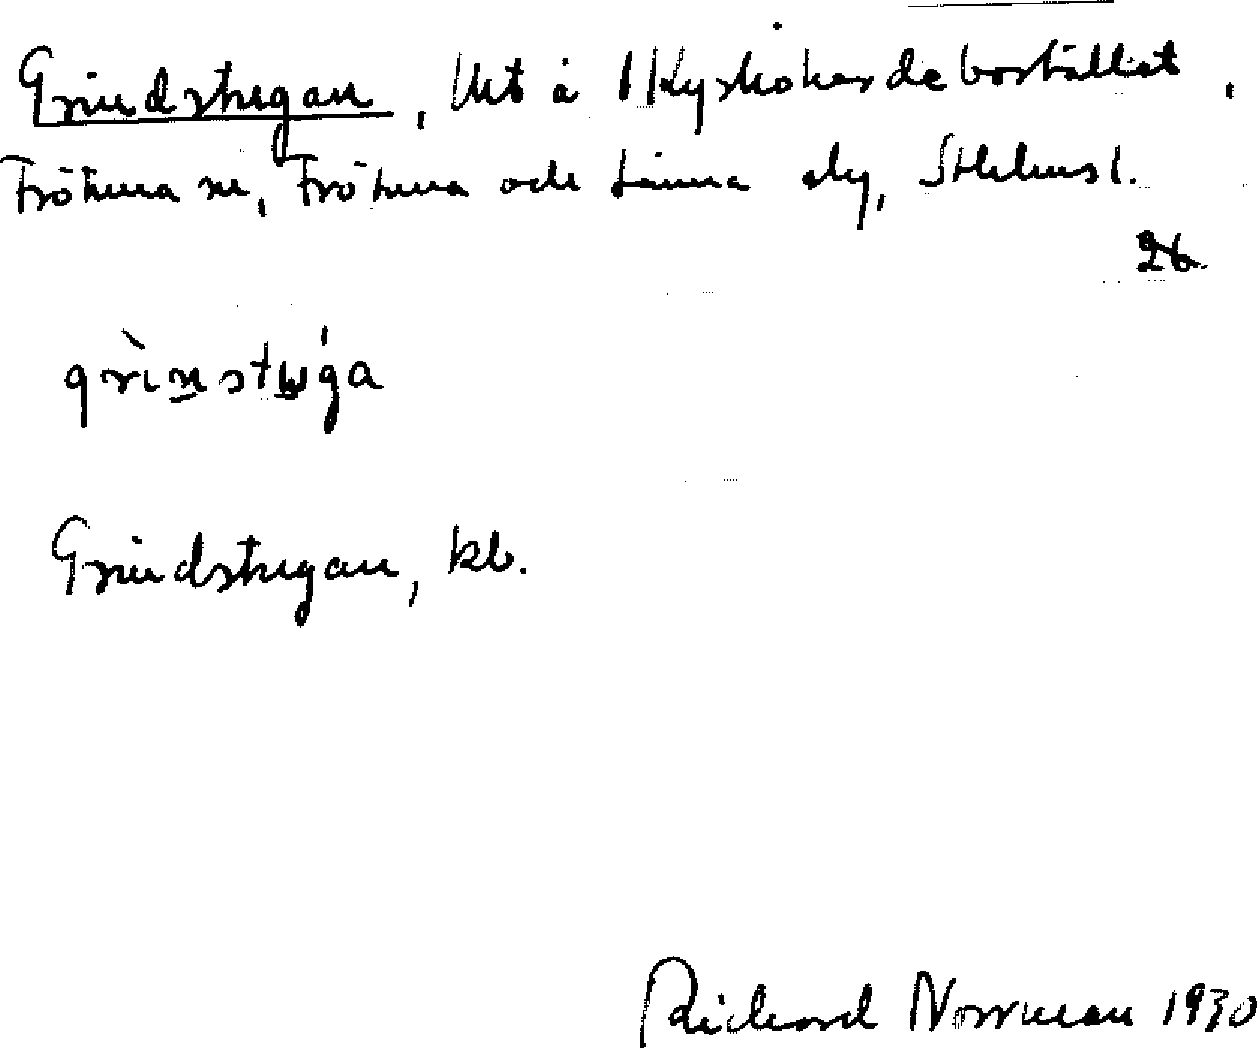 Grindstugan, lht å 1 Kyrkoherdebostället,
Frötuna sn, Frötuna och Länna skg, Sthlms l.
26
grinstuga
Grindstugan, kb.
Richard Norrman 1930